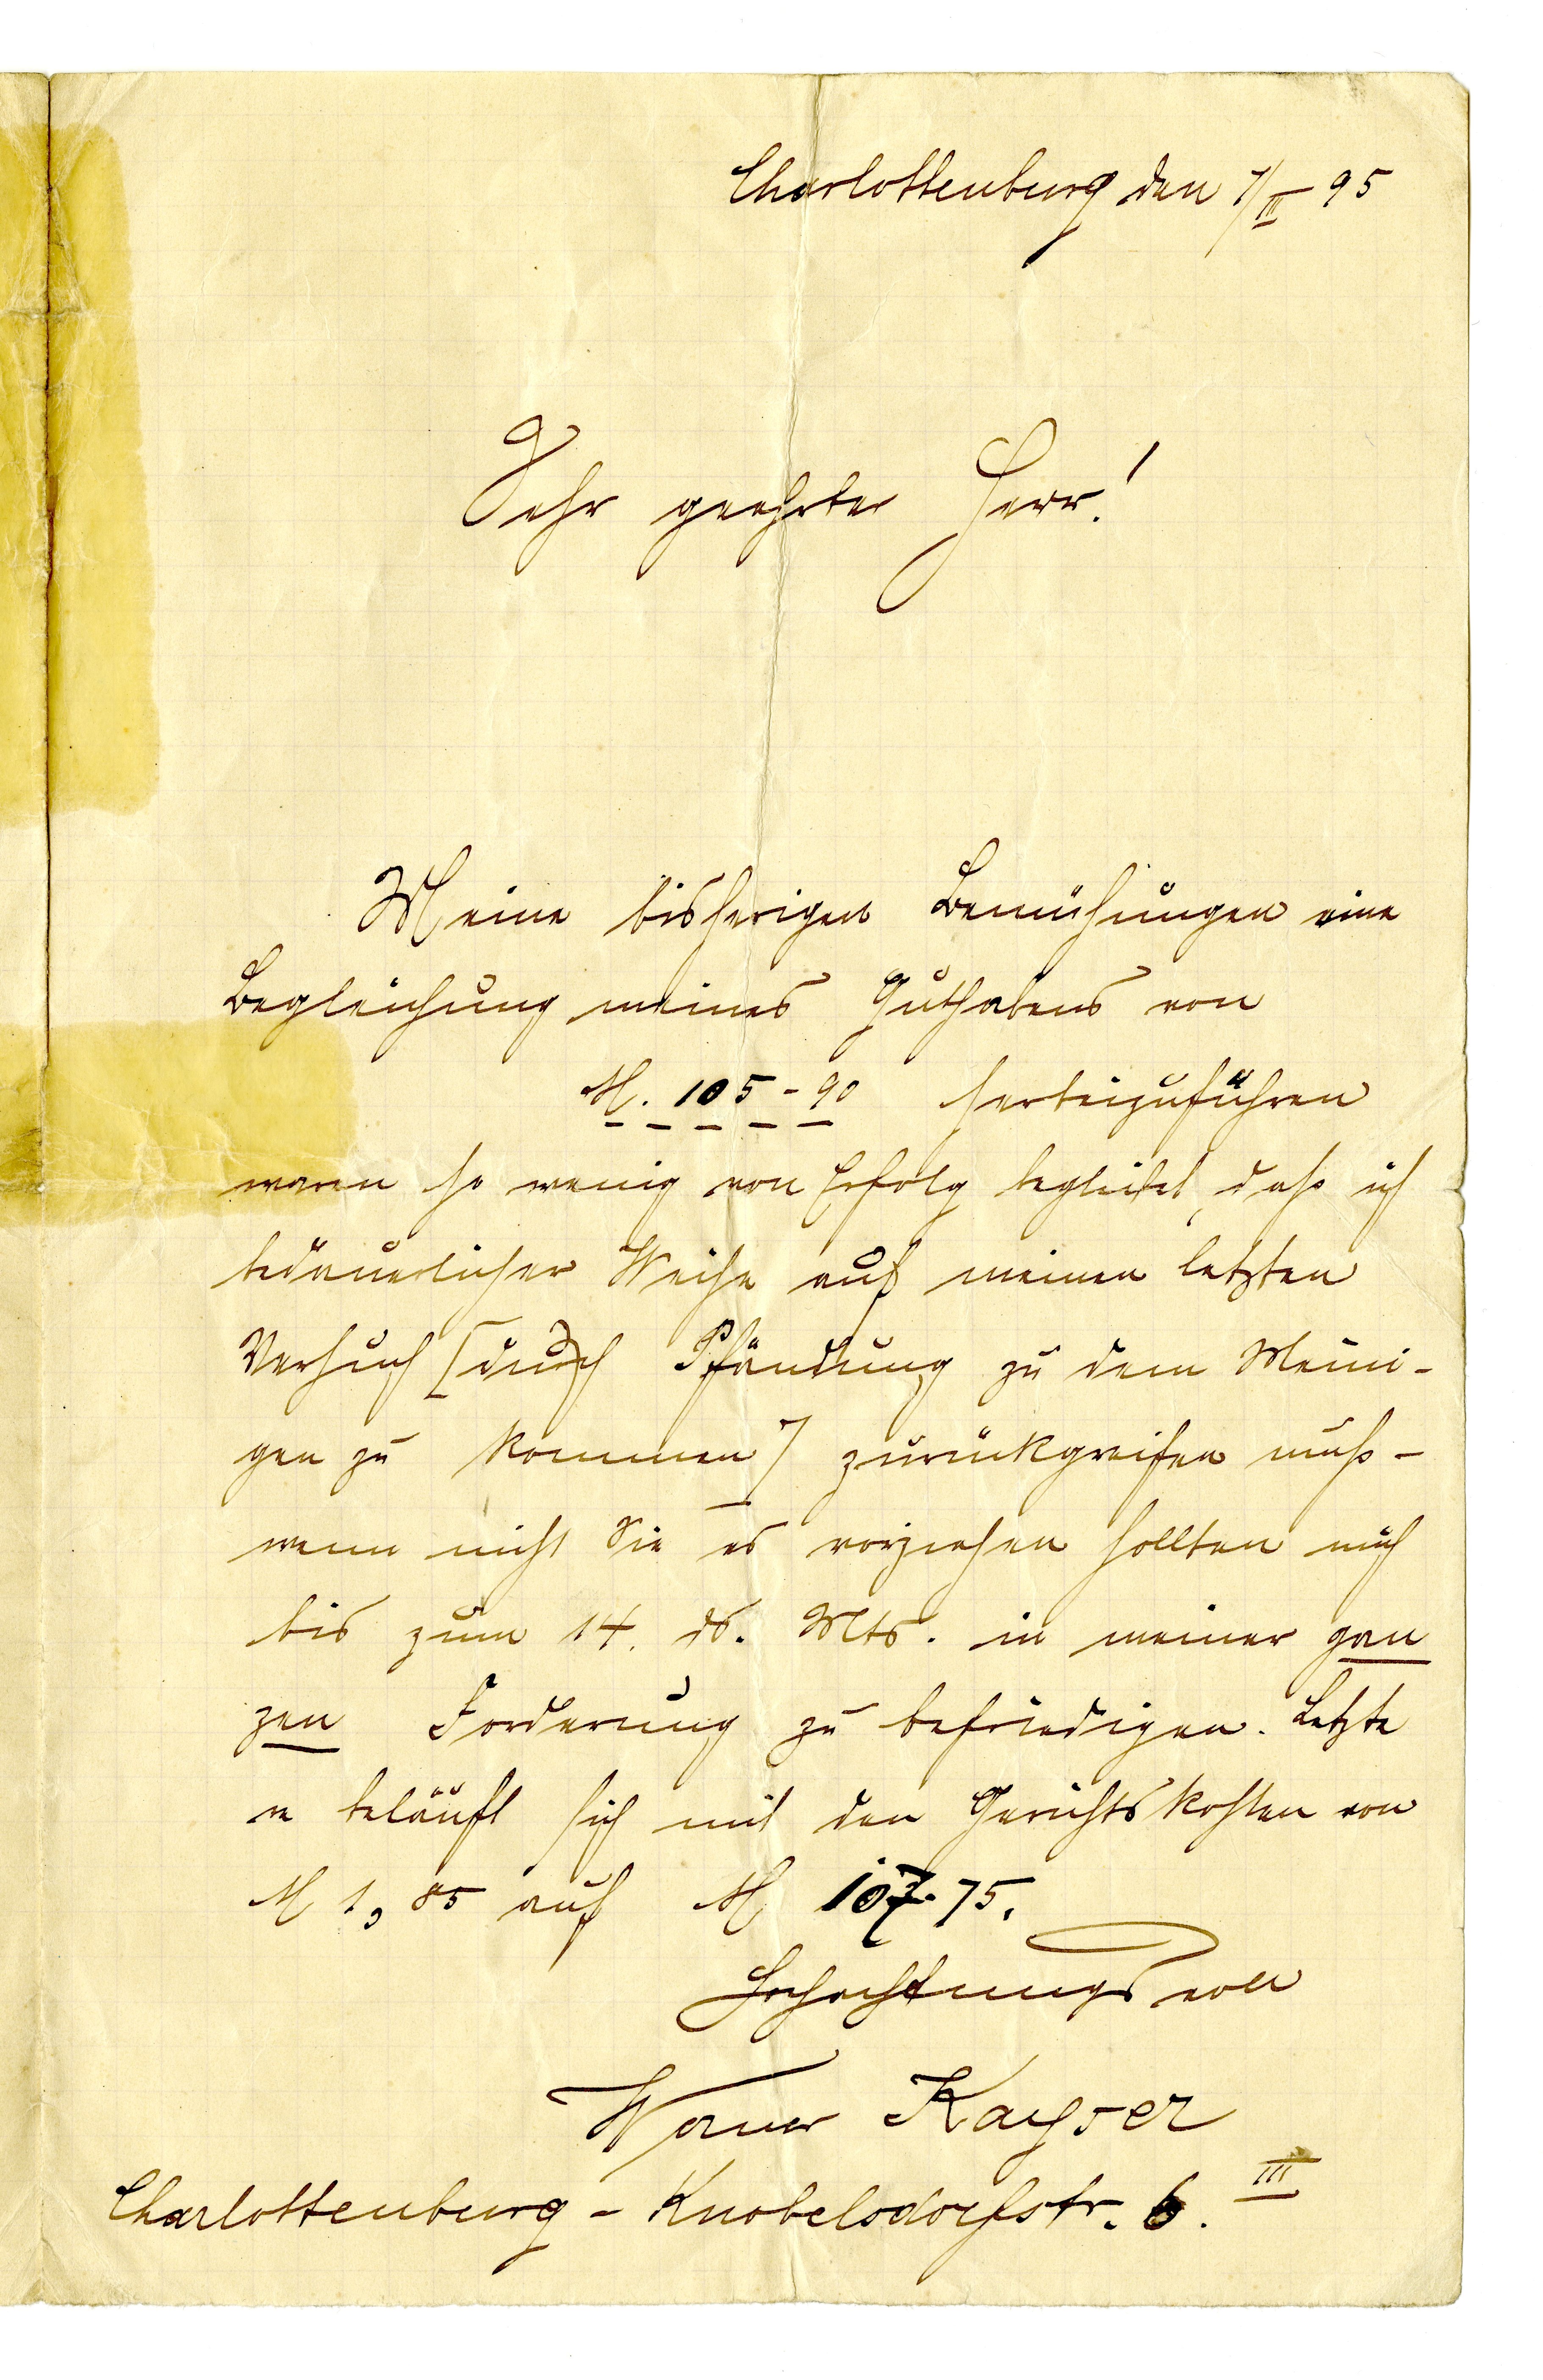 Charlottenburg den 7/III 95
Sehr geehrter Herr!
Meine bisherigen Bemühungen eine
Begleichung meines Guthabens von
M. 105-90 herbeizuführen
waren so wenig von Erfolg begleitet, daß ich
bedauerlicher Weise auf meinen letzten
Versuch [durch Pfändung zu dem Meini-
gen zu kommen] zurückgreifen muß -
wenn nicht Sie es vorziehen sollten mich
bis zum 14. ds. Mts. in meiner gan
zen Forderung zu befriedigen. Letzte
re beläuft sich mit den Gerichtskosten von
M 1,85 auf M 107.75.
Hochachtungsvoll
Werner Kayser
Charlottenburg - Knobelsdorfstr. 6. III